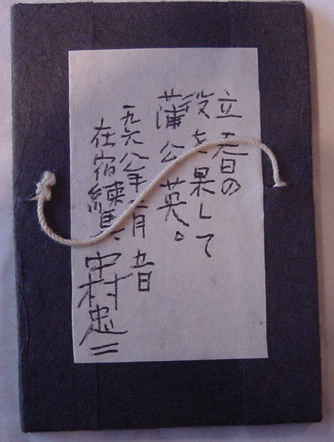 立春の
役を果して
蒲公英。
一九六八年二月五日
在宿練馬 中村忠二